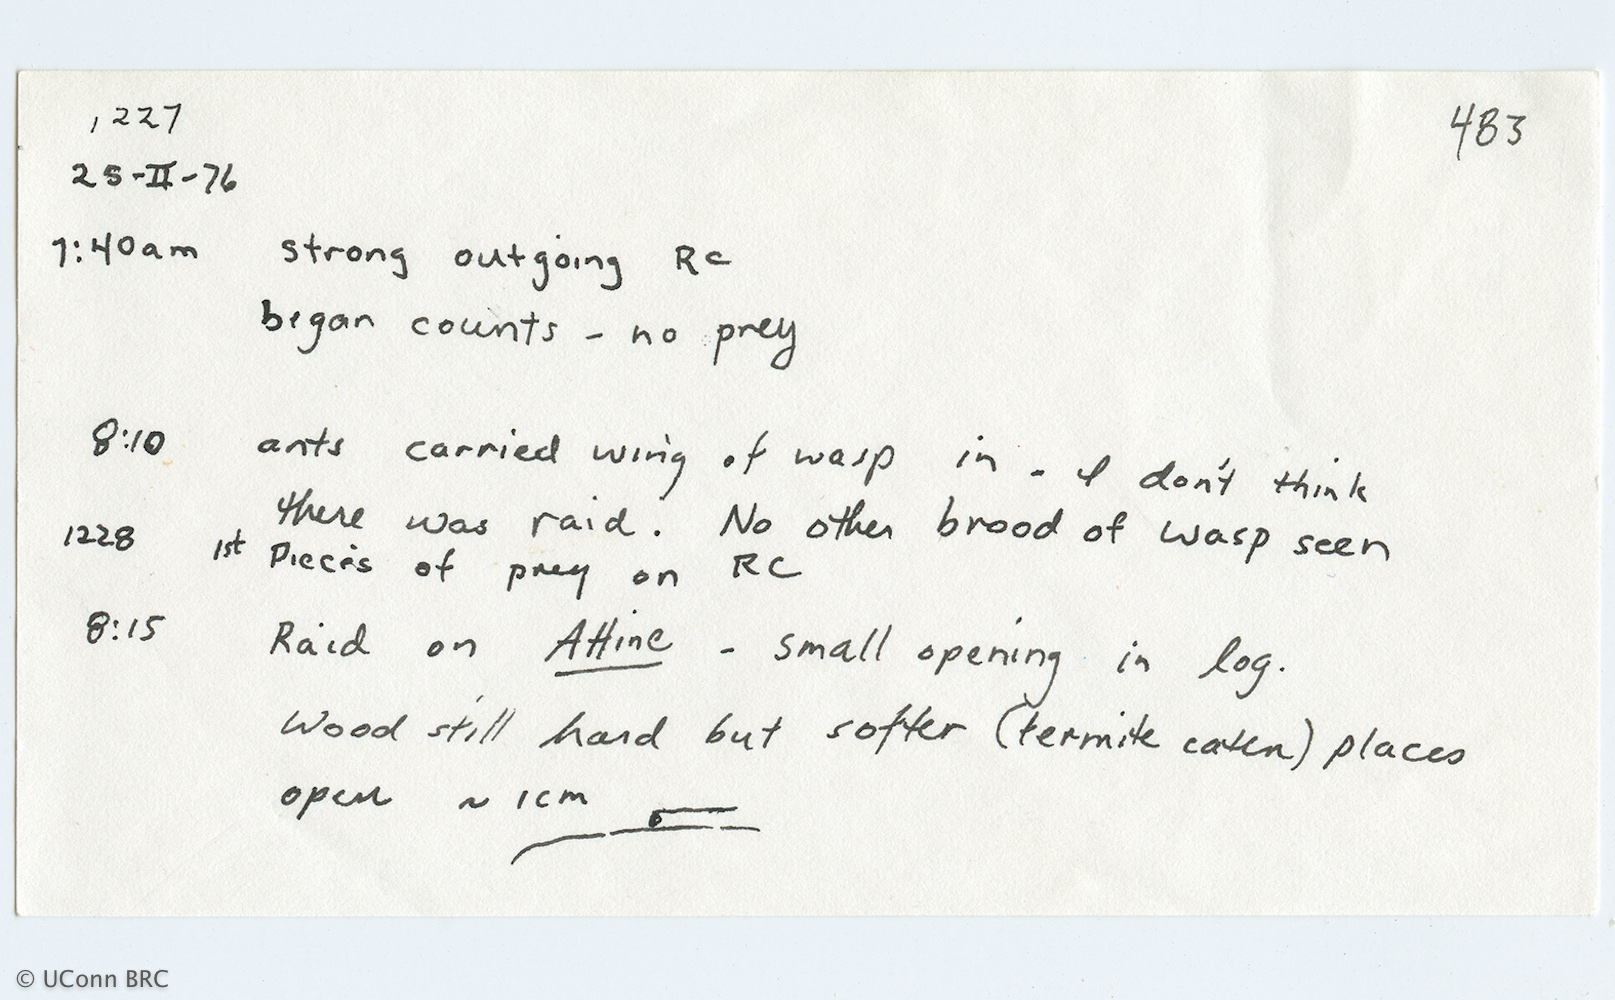 1227
483
25-II-76
7:40am strong outgoing RC
began counts - no prey
8:10 ants carried wing of wasp in - I don't think
there was raid. No other brood of wasp seen
1228 1st Pieces of prey on RC
8:15 Raid on Attine - small opening in log.
Wood still hard but softer (termite eaten) places
open ~ 1cm
© UConn BRC